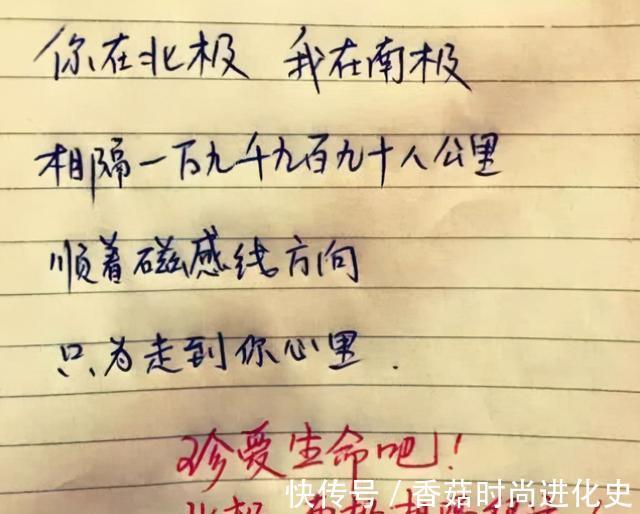 你在北极 我在南极
相隔一万九千九百九十八公里
顺着磁感线方向
只为走到你心里.
珍爱生命吧!
快传号/香菇时尚进化史